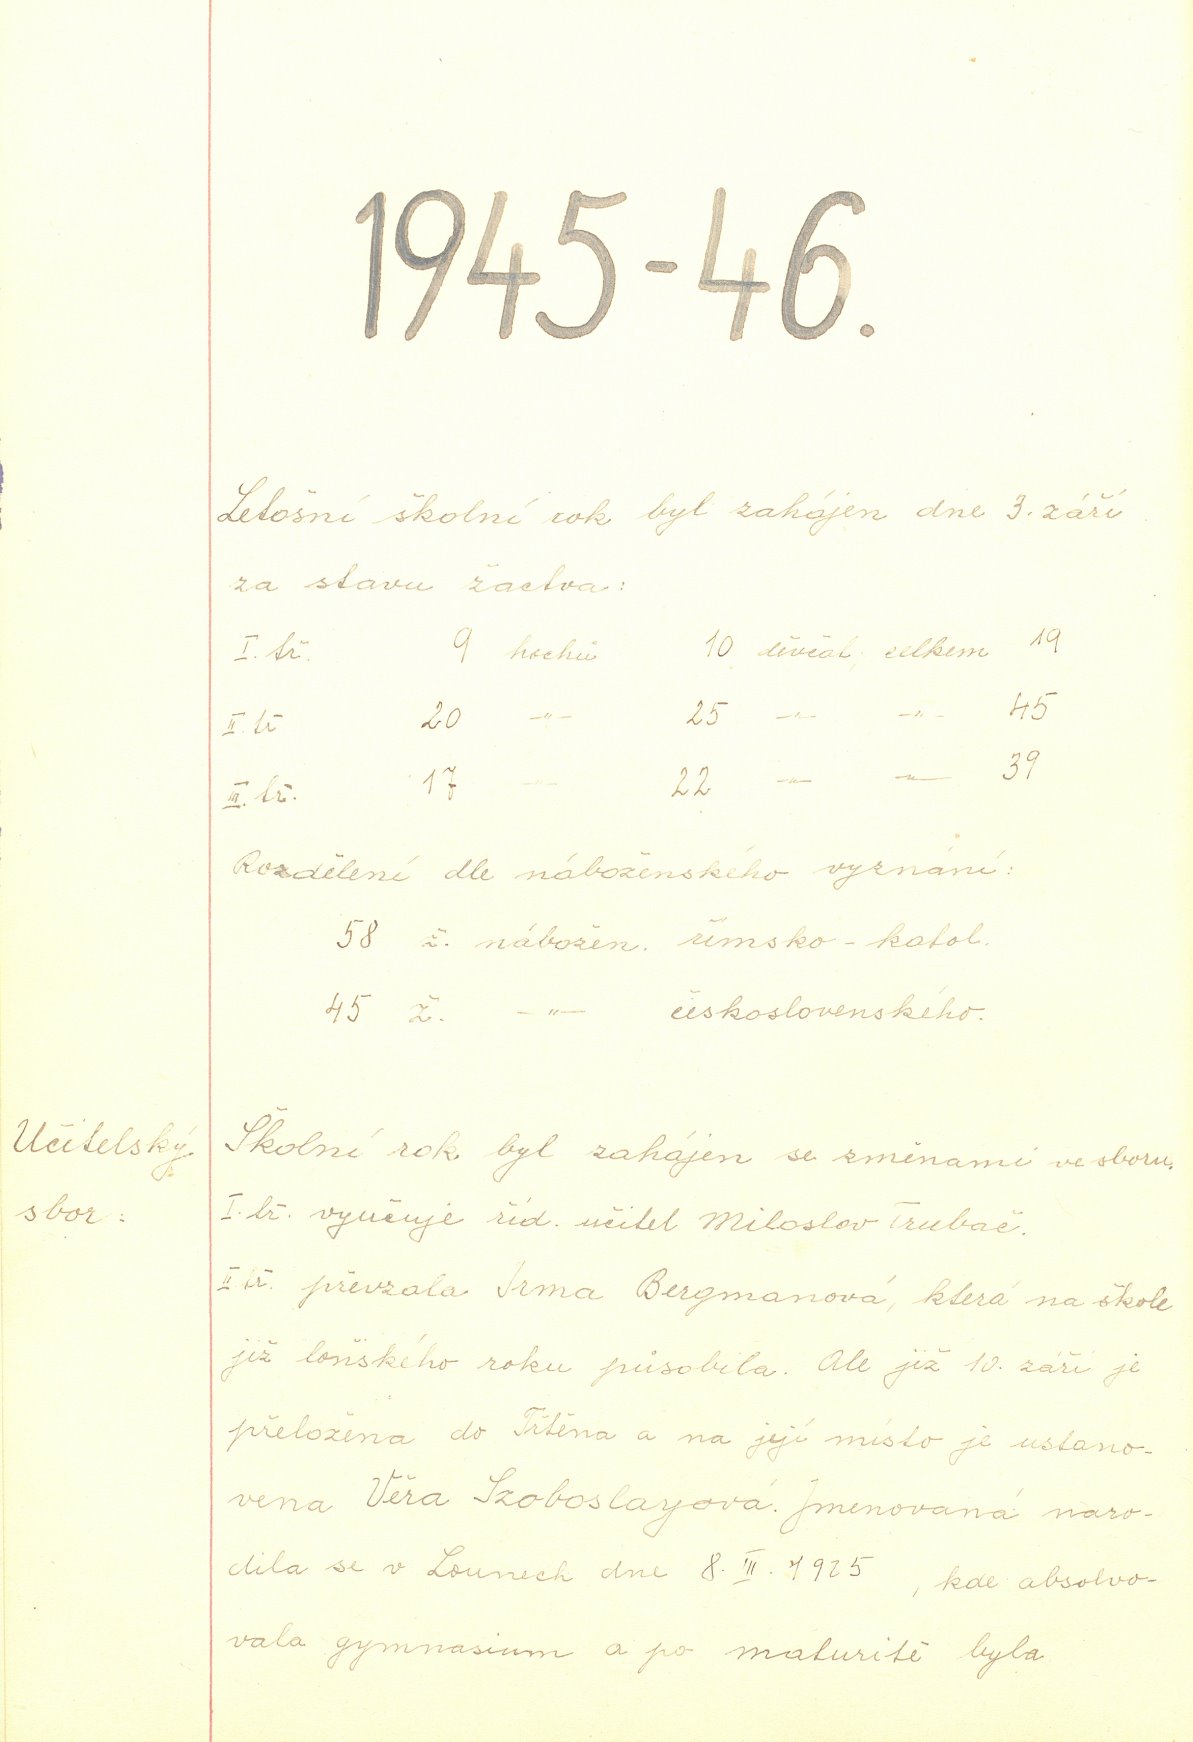 1945-46.
Letošní školní rok byl zahájen dne 3. září
za stavu žactva:
I. tř. 9 hochů 10 děvčat, celkem 19
II. tř 20 -"- 25 -"- -"- 45
III. tř. 17 -"- 22 -"- -"- 39
Rozdělení dle náboženského vyznání:
58 ž. nábožen. římsko - katol.
45 ž. -"- československého.
Učitelský
sbor:
Školní rok byl zahájen se změnami ve sboru.
I. tř. vyučuje říd. učitel Miloslav Trubač.
II. tř. převzala Irma Bergmanová, která na škole
již loňského roku působila. Ale již 10. září je
přeložena do Třtěna a na její místo je ustano-
vena Věra Szoboslayová. Jmenovaná naro-
dila se v Lounech dne 8. III. 1925, kde absolvo-
vala gymnasium a po maturitě byla